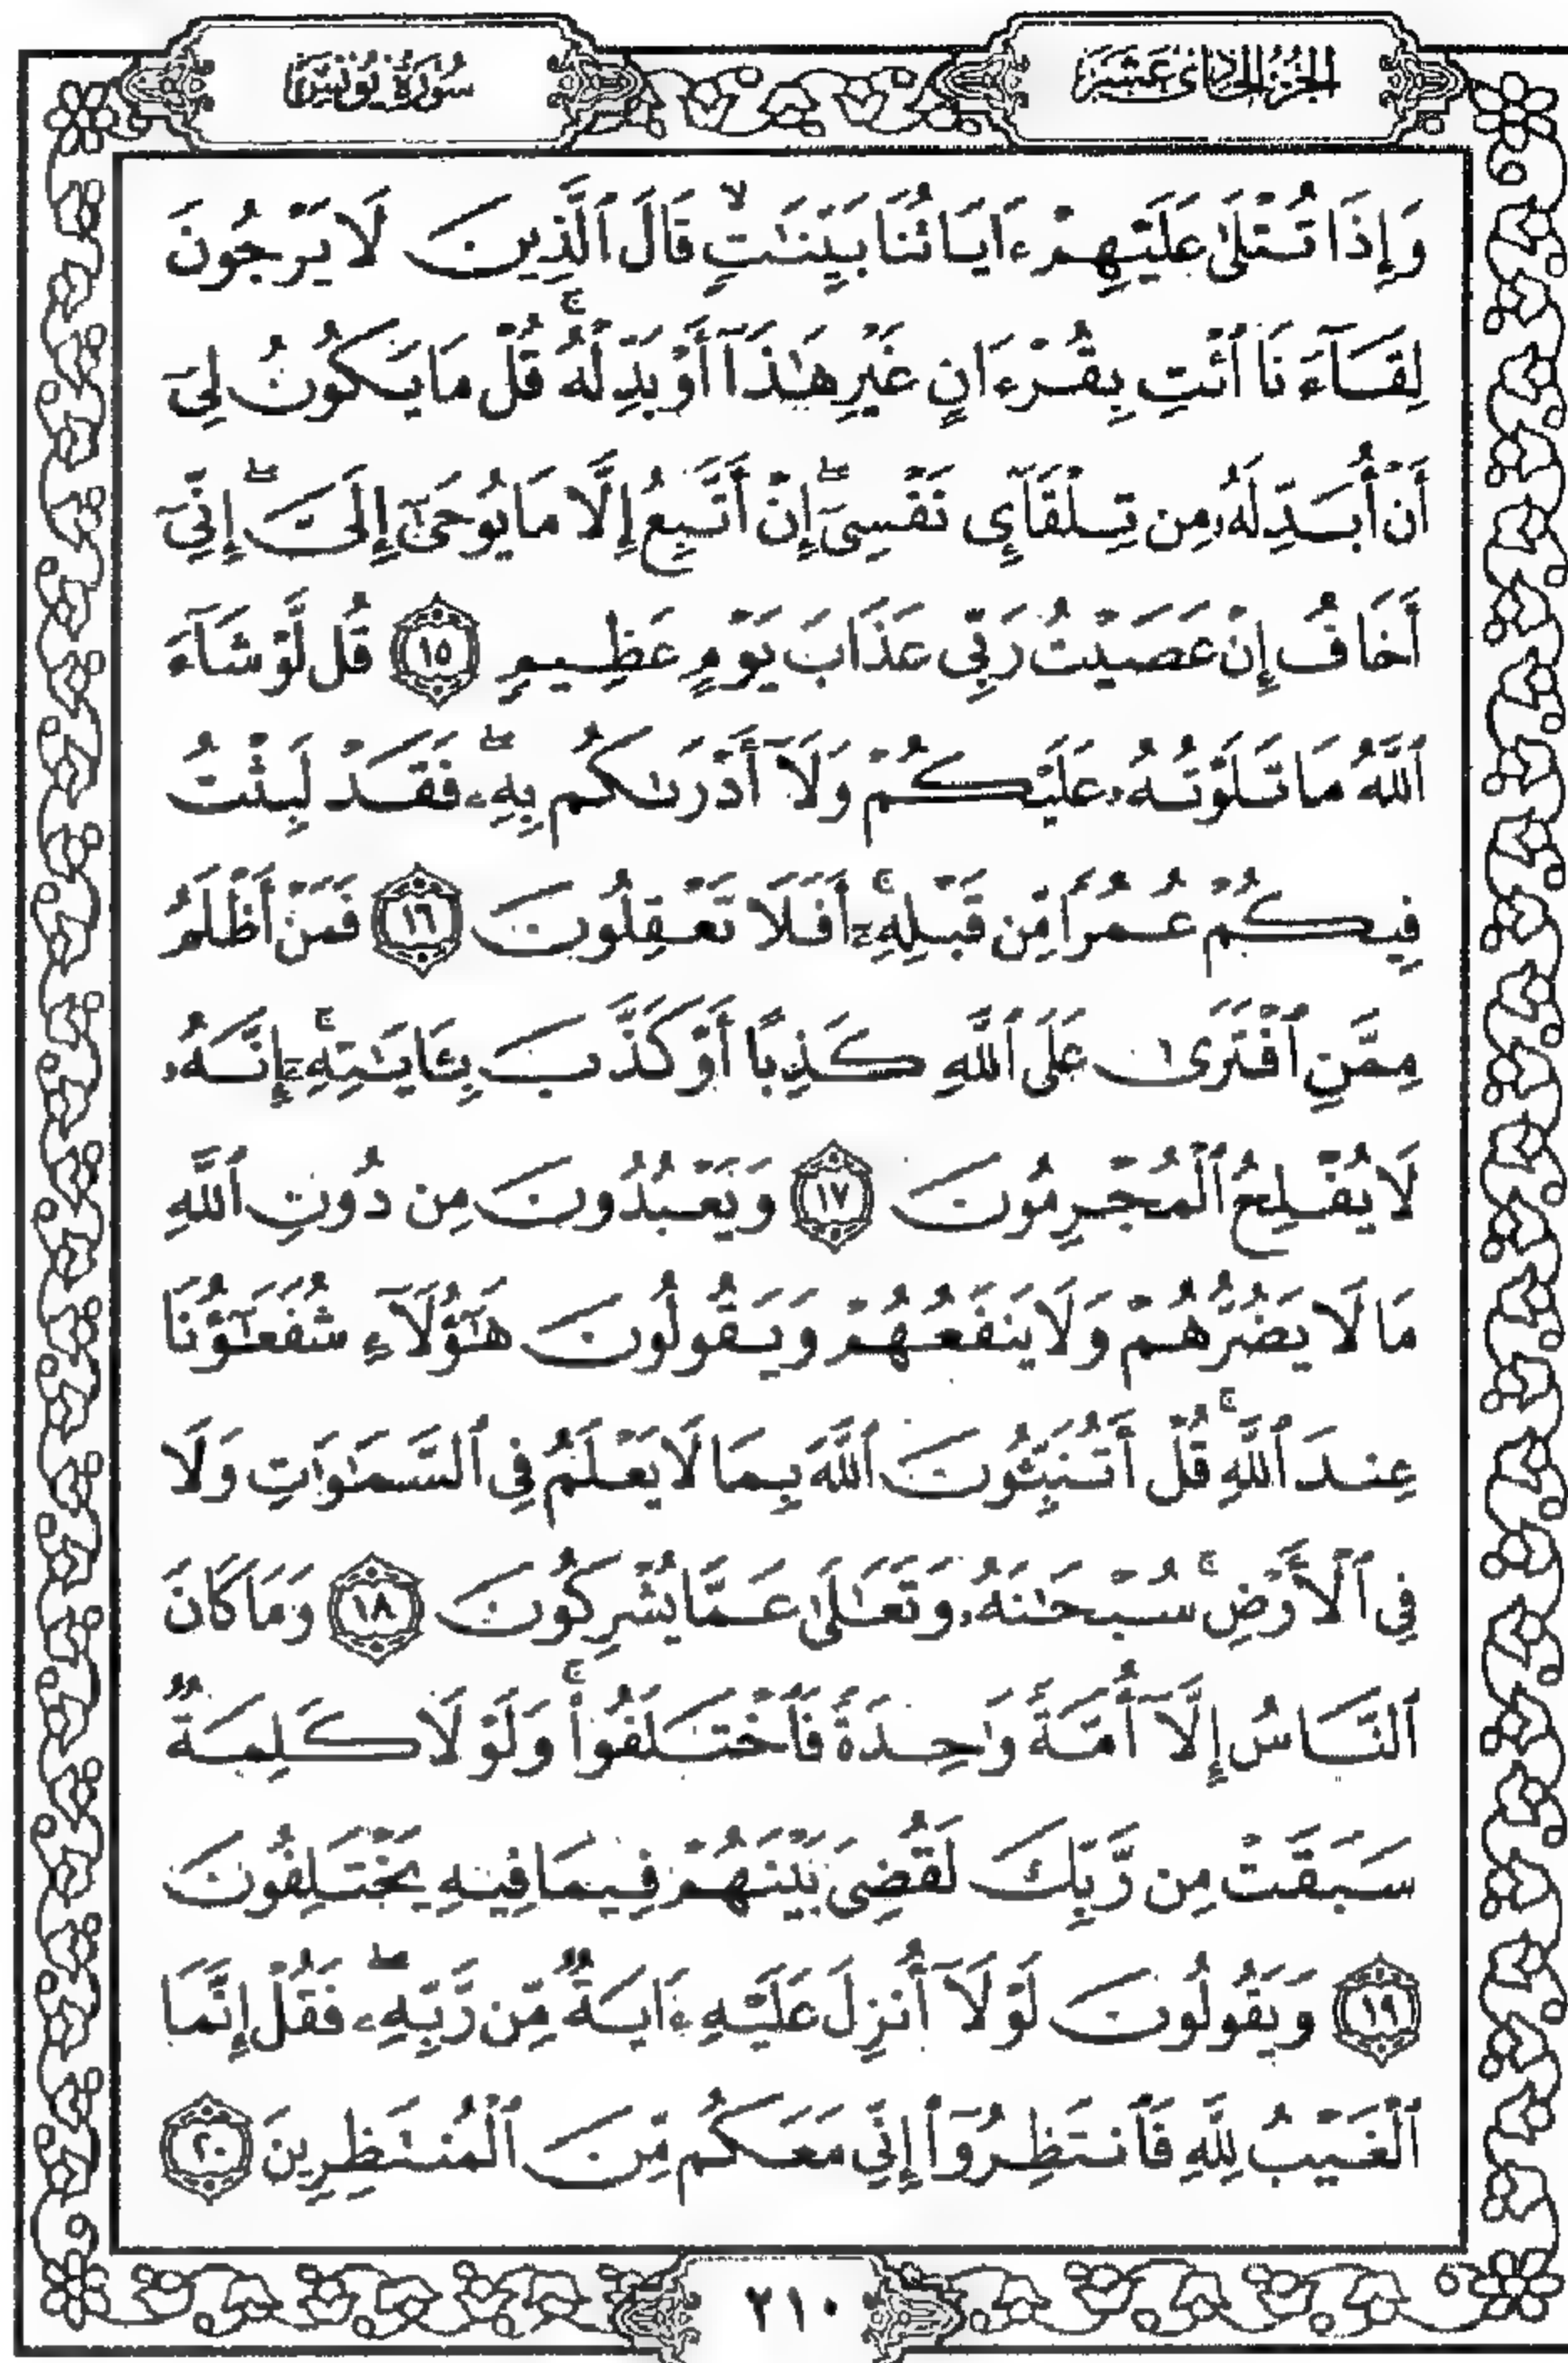 الجزء الحادي عشر
سورة يونس
وَإِذَا تُتْلَىٰ عَلَيْهِمْ ءَايَاتُنَا بَيِّنَٰتٍۙ قَالَ ٱلَّذِينَ لَا يَرْجُونَ
لِقَآءَنَا ٱئْتِ بِقُرْءَانٍ غَيْرِ هَٰذَآ أَوْ بَدِّلْهُۚ قُلْ مَا يَكُونُ لِىٓ
أَنْ أُبَدِّلَهُۥ مِن تِلْقَآئِ نَفْسِىٓۖ إِنْ أَتَّبِعُ إِلَّا مَا يُوحَىٰٓ إِلَىَّۖ إِنِّىٓ
أَخَافُ إِنْ عَصَيْتُ رَبِّى عَذَابَ يَوْمٍ عَظِيمٍ ١٥ قُل لَّوْ شَآءَ
ٱللَّهُ مَا تَلَوْتُهُۥ عَلَيْكُمْ وَلَآ أَدْرَىٰكُم بِهِۦۖ فَقَدْ لَبِثْتُ
فِيكُمْ عُمُرًا مِّن قَبْلِهِۦٓۚ أَفَلَا تَعْقِلُونَ ١٦ فَمَنْ أَظْلَمُ
مِمَّنِ ٱفْتَرَىٰ عَلَى ٱللَّهِ كَذِبًا أَوْ كَذَّبَ بِـَٔايَٰتِهِۦٓۚ إِنَّهُۥ
لَا يُفْلِحُ ٱلْمُجْرِمُونَ ١٧ وَيَعْبُدُونَ مِن دُونِ ٱللَّهِ
مَا لَا يَضُرُّهُمْ وَلَا يَنفَعُهُمْ وَيَقُولُونَ هَٰٓؤُلَآءِ شُفَعَٰٓؤُنَا
عِندَ ٱللَّهِۚ قُلْ أَتُنَبِّـُٔونَ ٱللَّهَ بِمَا لَا يَعْلَمُ فِى ٱلسَّمَٰوَٰتِ وَلَا
فِى ٱلْأَرْضِۚ سُبْحَٰنَهُۥ وَتَعَٰلَىٰ عَمَّا يُشْرِكُونَ ١٨ وَمَا كَانَ
ٱلنَّاسُ إِلَّآ أُمَّةً وَٰحِدَةً فَٱخْتَلَفُوا۟ۚ وَلَوْلَا كَلِمَةٌ
سَبَقَتْ مِن رَّبِّكَ لَقُضِىَ بَيْنَهُمْ فِيمَا فِيهِ يَخْتَلِفُونَ
١٩ وَيَقُولُونَ لَوْلَآ أُنزِلَ عَلَيْهِ ءَايَةٌ مِّن رَّبِّهِۦۖ فَقُلْ إِنَّمَا
ٱلْغَيْبُ لِلَّهِ فَٱنتَظِرُوٓا۟ إِنِّى مَعَكُم مِّنَ ٱلْمُنتَظِرِينَ ٢٠
٢١٠